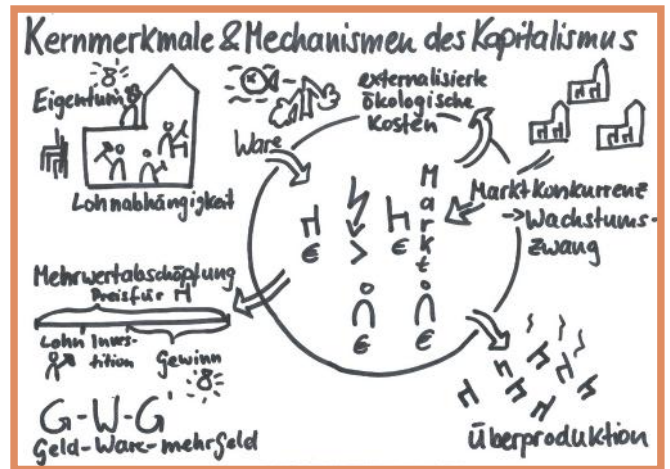 Kernmerkmale & Mechanismen des Kapitalismus
Eigentum
Lohnabhängigkeit
Ware
externalisierte
ökologische
Kosten
Marktkonkurrenz
-> Wachstums-
zwang
Markt
€ > €
€ €
Mehrwertabschöpfung
Preis für
Lohn Inves-
tition
Gewinn
G-W-G'
Geld-Ware-mehrGeld
Überproduktion